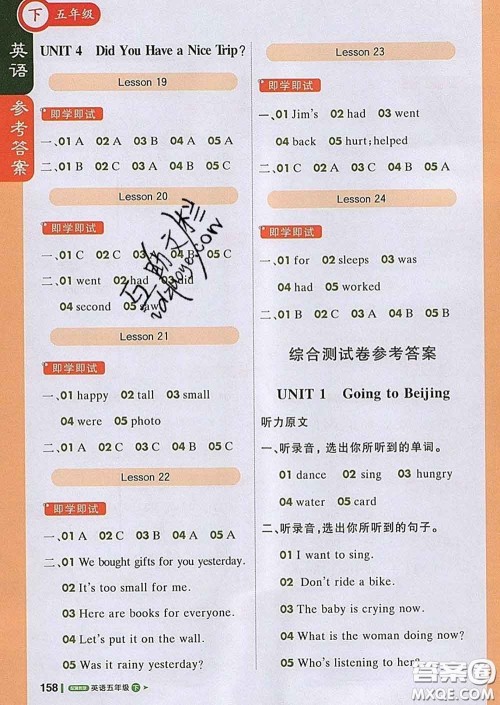 下 五年级
英语
参考答案
UNIT 4 Did You Have a Nice Trip?
Lesson 19
即学即试
一、01 A 02 A 03 B 04 A 05 A
二、01 B 02 C 03 B 04 A 05 C
Lesson 20
即学即试
一、01 C 02 C 03 B 04 A 05 C
二、01 went 02 had 03 did
04 second 05 saw
Lesson 21
即学即试
一、01 happy 02 tall 03 small
04 were 05 photo
二、01 B 02 C 03 A 04 A 05 B
Lesson 22
即学即试
一、01 A 02 C 03 B 04 B 05 C
二、01 We bought gifts for you yesterday.
02 It's too small for me.
03 Here are books for everyone.
04 Let's put it on the wall.
05 Was it rainy yesterday?
158 英语五年级 下
Lesson 23
即学即试
一、01 Jim's 02 had 03 went
04 back 05 hurt;helped
二、01 C 02 A 03 A 04 B 05 A
Lesson 24
即学即试
一、01 for 02 sleeps 03 was
04 had 05 worked
二、01 C 02 B 03 A 04 B 05 C
综合测试卷参考答案
UNIT 1 Going to Beijing
听力原文
一、听录音,选出你所听到的单词。
01 dance 02 sing 03 hungry
04 water 05 card
二、听录音,选出你所听到的句子。
01 I want to sing.
02 Don't ride a bike.
03 The baby is crying now.
04 What is the woman doing now?
05 Who's listening to her?
答案圈
MXQE.COM